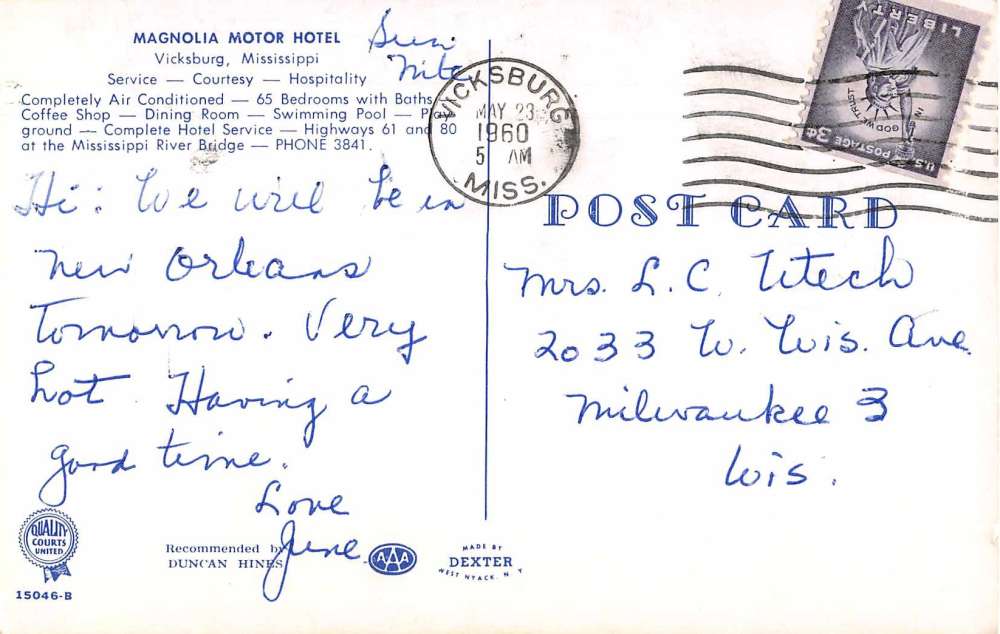 MAGNOLIA MOTOR HOTEL
Vicksburg, Mississippi
Service — Courtesy — Hospitality
Completely Air Conditioned — 65 Bedrooms with Baths
Coffee Shop — Dining Room — Swimming Pool —
ground — Complete Hotel Service — Highways 61 and 80
at the Mississippi River Bridge — PHONE 3841.
Sun
Nite
Hi: We will be in
New Orleans
Tomorrow. Very
hot. Having a
good time.
Love
June
QUALITY
COURTS
UNITED
15046-B
Recommended by
DUNCAN HINES
AAA
MADE BY
DEXTER
WEST NYACK, N Y
VICKSBURG
MAY 23
1960
5 AM
MISS.
LIBERTY
IN GOD WE TRUST
U.S. POSTAGE 3¢
POST CARD
Mrs. L. C. Utech
2033 W. Wis. Ave.
Milwaukee 3
Wis.